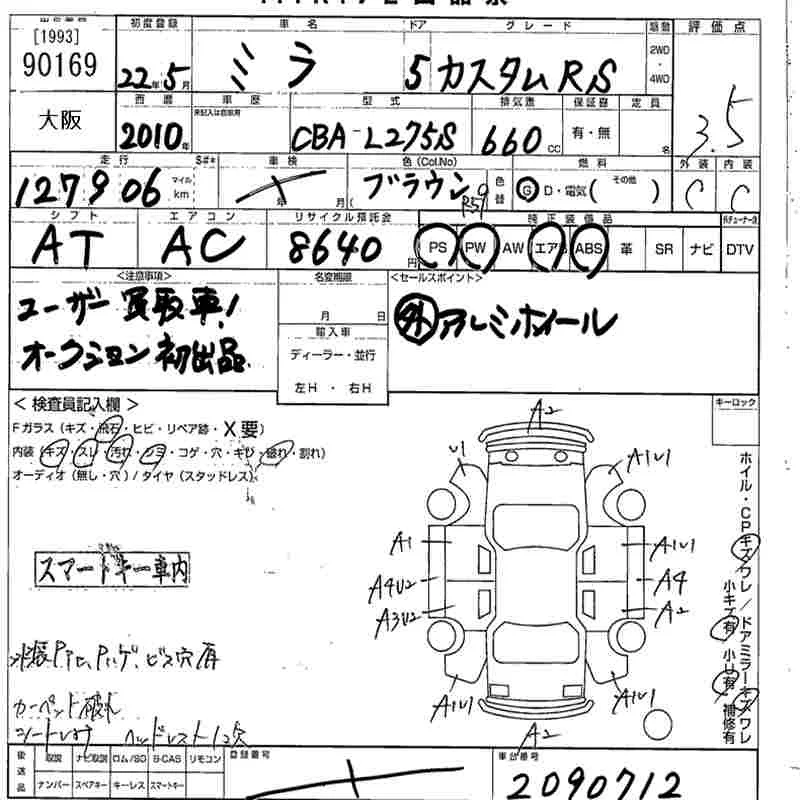 初度登録 車名 ドア グレード 駆動 評価点
[1993]
90169 22年5月 ミラ 5 カスタムRS 2WD・4WD 3.5
西暦 車歴 型式 排気量 保証書 定員
未記入は自家用
大阪 2010年 CBA-L275S 660cc 有・無 名
走行 S#* 車検 色(Col.No) 燃料 外装 内装
127906 マイル km 年 月( ブラウン R59 色替 G D・電気( その他 ) C C
シフト エアコン リサイクル預託金 純正装備品
AT AC 8640円 PS PW AW エアB ABS 革 SR ナビ DTV
<注意事項> 名変期限 <セールスポイント>
ユーザー買取車!
オークション初出品
月 日
外 アルミホイール
輸入車
ディーラー・並行
左H・右H
<検査員記入欄> キーロック
Fガラス(キズ・飛石・ヒビ・リペア跡・X要)
内装(キズ・スレ・汚れ・シミ・コゲ・穴・キレ・破れ・割れ)
オーディオ(無し・穴)/タイヤ(スタッドレス)
A2
U1 A1U1
A1 A1U1
A4U2 A4
A3U2 A2
A1U1 A1U1
A2
ホイル・CPキズワレ/ドアミラーキズワレ
小キズ有 小U有 補修有
スマートキー車内
ビス穴有
カーペット破れ
ヘッドレスト1欠
後送品 取説 ナビ取説 ロム/SD B-CAS リモコン 登録番号 車台番号
ナンバー スペアキー キーレス スマートキー 2090712